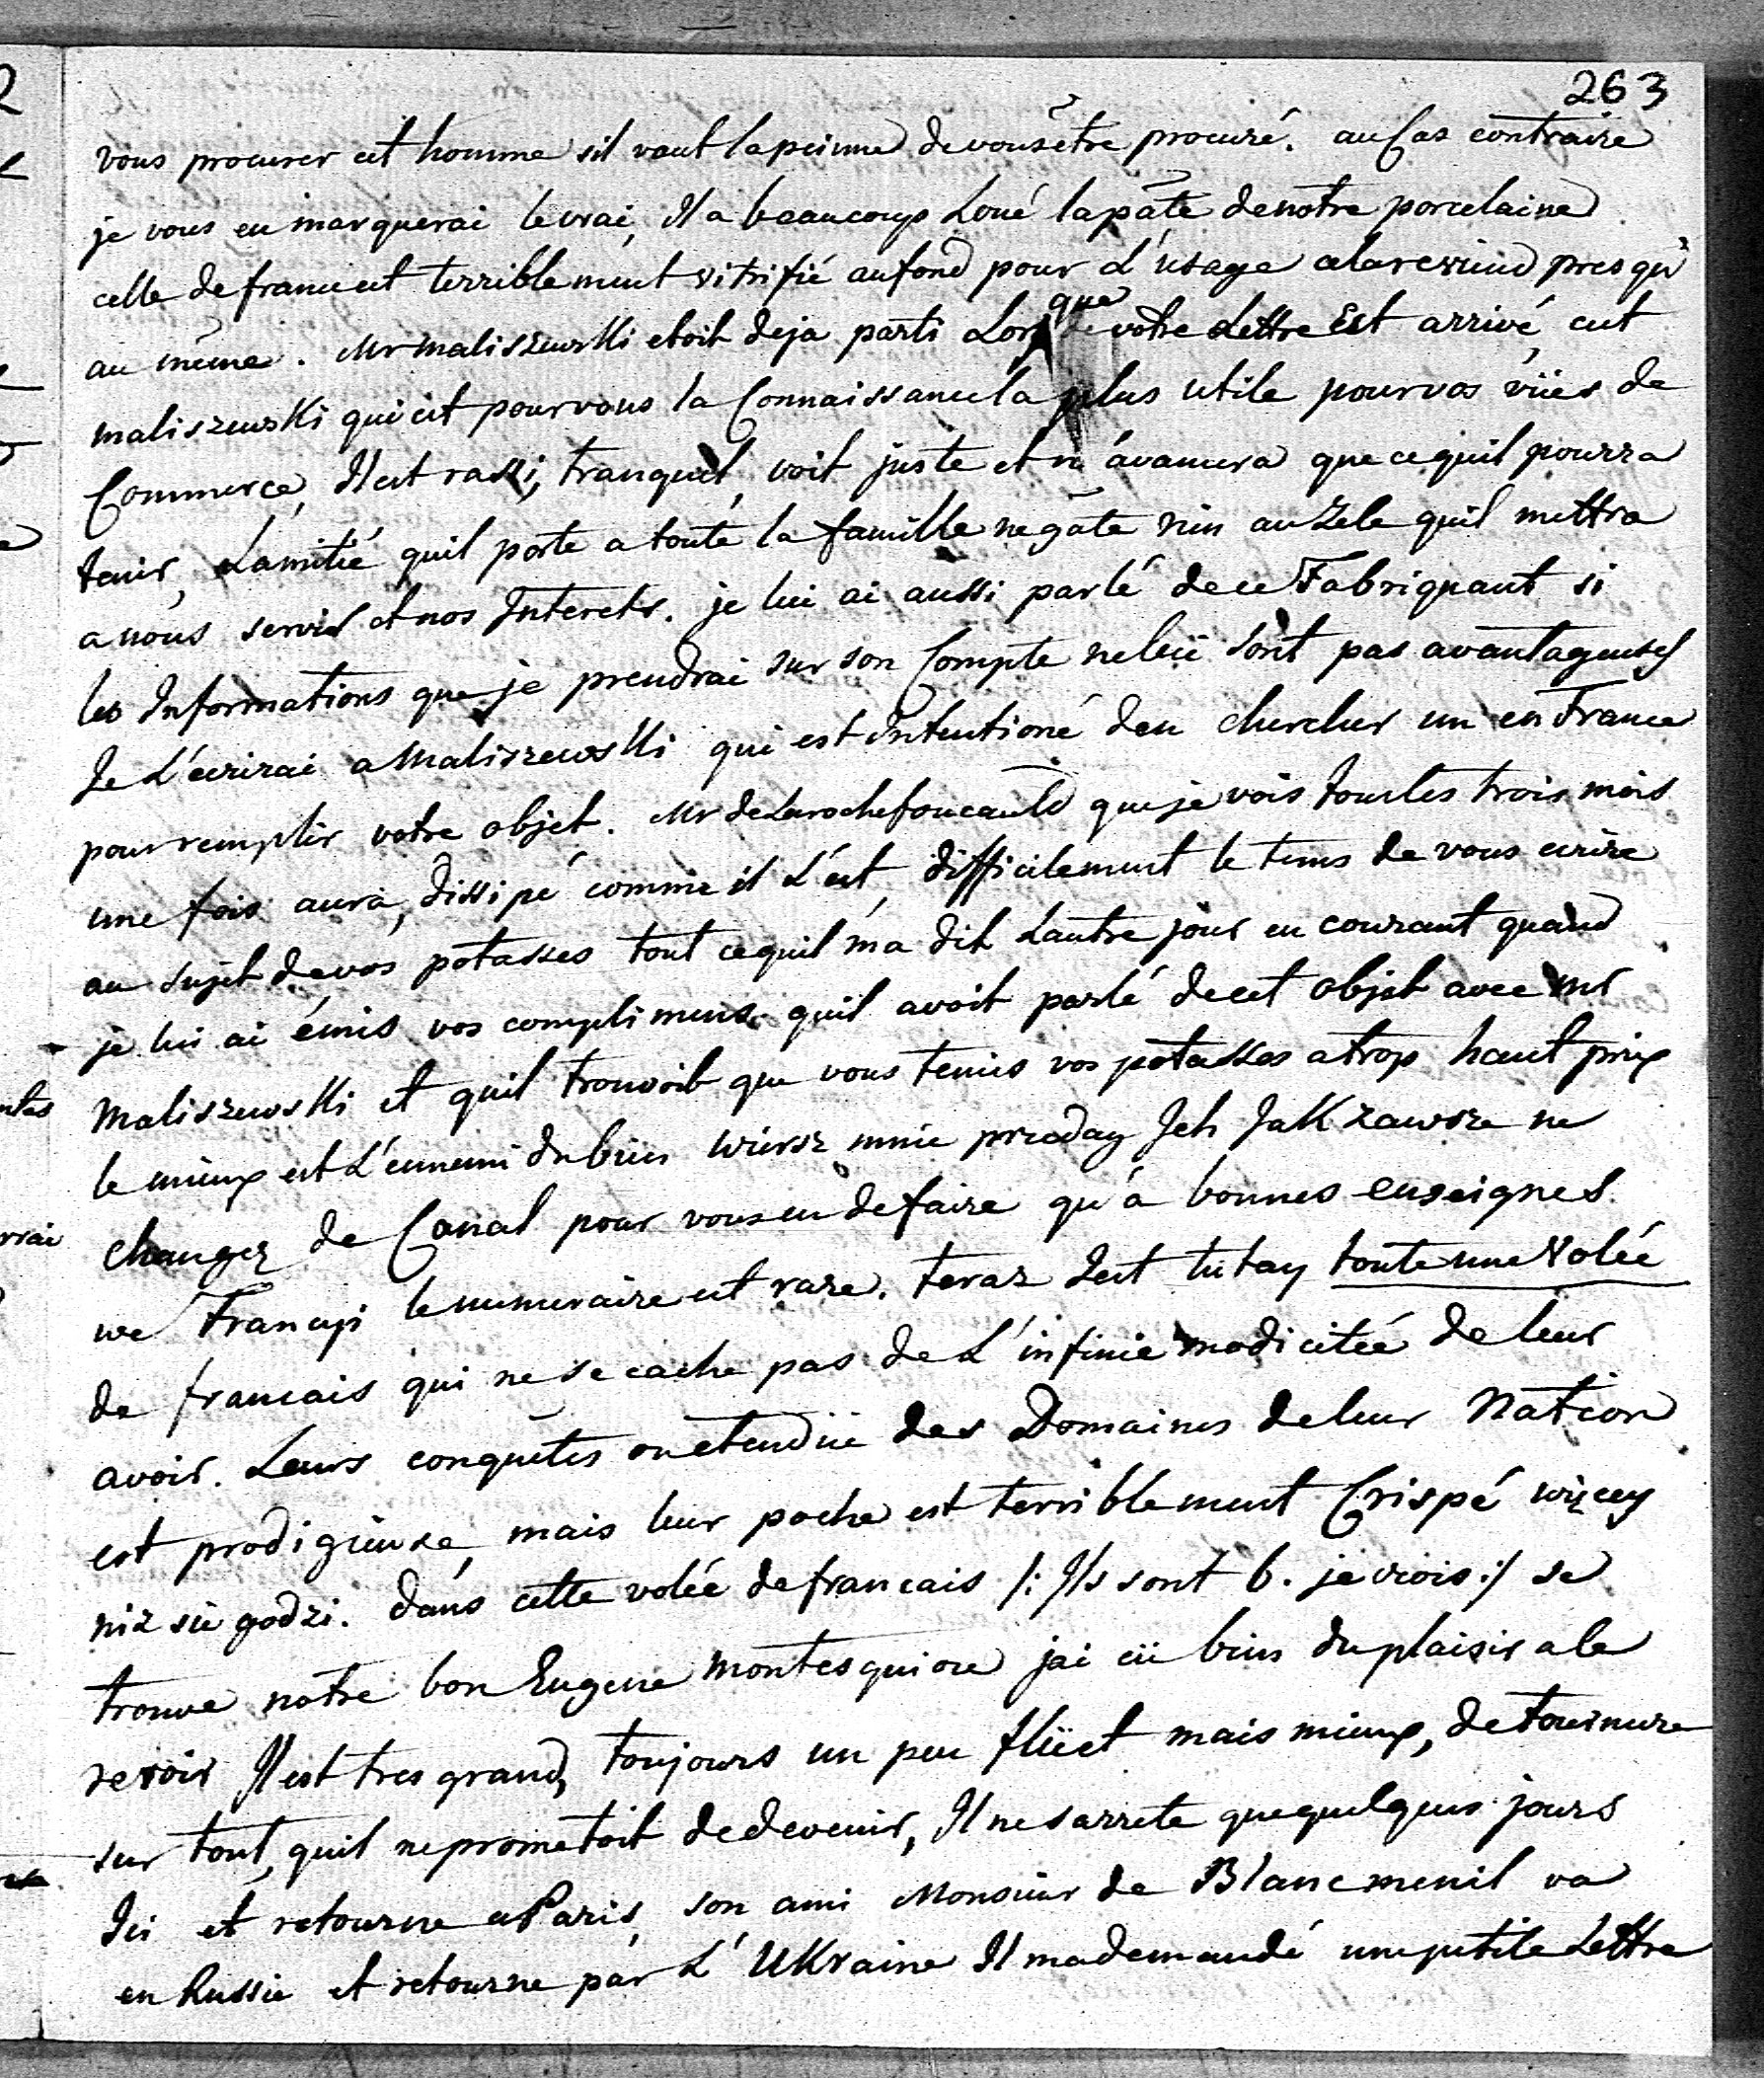 263
vous procurer cet homme sil vaut la peinne de vous être procuré. au Cas contraire
je vous en marquerai le vrai, Il a beaucoup Loué la pâte de notre porcelaine
celle de france est terriblement vitrifié au fond pour L'usage cela revieind presqu'
au même. Mr Maliszewski etoit deja parti Lorsque votre Lettre Est arrivé, cet
Maliszewski qui est pour vous la Connaissance la plus utile pour vos vües de
Commerce, Il est rassi, tranquil, voit juste et n'avancera que ce quil pourra
tenir, L'amitié quil porte a toute la famille ne gâte rien au Zele quil mettra
a nous servir et nos Interets. je lui ai aussi parlé de ce Fabriquant si
les Informations que je prendrai sur son Compte ne luï sont pas avantageuses
Je L'ecrirai a Maliszewski qui est Intentioné den chercher un en France
pour remplir votre objet. Mr de Larochefoucauld que je vois tous les trois mois
une fois aura, dissipé comme il L'est, difficilement le tems de vous ecrire
au sujet de vos potasses tout ce quil m'a dit L'autre jour en courant quand
je lui ai émis vos complimens quil avoit parlé de cet objet avec Mr
Maliszewski et quil trouvoit que vous tenies vos potasses a trop haut prix
le mieux est L'ennemi du bien wiersz mnie przeday Jch Jak zawsze ne
changez de Canal pour vous en defaire qu'à bonnes enseignes.
we Francyi le numeraire est rare. teraz Jest tutay toute une volée
de francais qui ne se cache pas de L'infinie modicitée de leur
avoir. Leurs conquêtes on etendüe des Domaines de leur Nation
est prodigieuse, mais leur poche est terriblement Crispé więcey
niz sie godzi. dans cette volée de francais /: Ils sont 6. je crois :/ se
trouve notre bon Eugene Montesquiou jai eü bien du plaisir a le
revoir Il est tres grand, toujours un peu flüet mais mieux, de tournure
sur tout, quil ne prometoit de devenir, Il ne sarrete que quelques jours
Ici et retourne a Paris, son ami Monsieur de Blancmenil va
en Russie et retourne par L'Ukraine Il ma demandé une petite Lettre